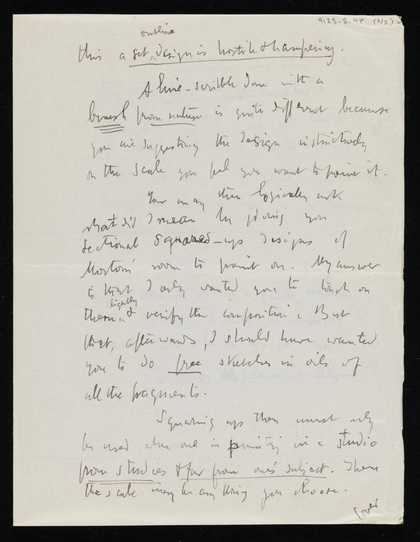 9125-2-47 (2/2)
outline
this a set design is hostile & hampering.
A line-scribble done with a
brush from nature is quite different because
you are suggesting the design instinctively
on the scale you feel you want to paint it.
You may then logically ask
what did I mean by giving you
sectional squared-up designs of
room to paint on. My answer
is that I only wanted you to on
them lightly & verify the composition. But
that, afterwards, I should have wanted
you to do free sketches in oils of
all the fragments.
Squaring up then must only
be used when one is painting in a studio
from studies & far from one's subject. There
the scale may be any thing you choose.
over